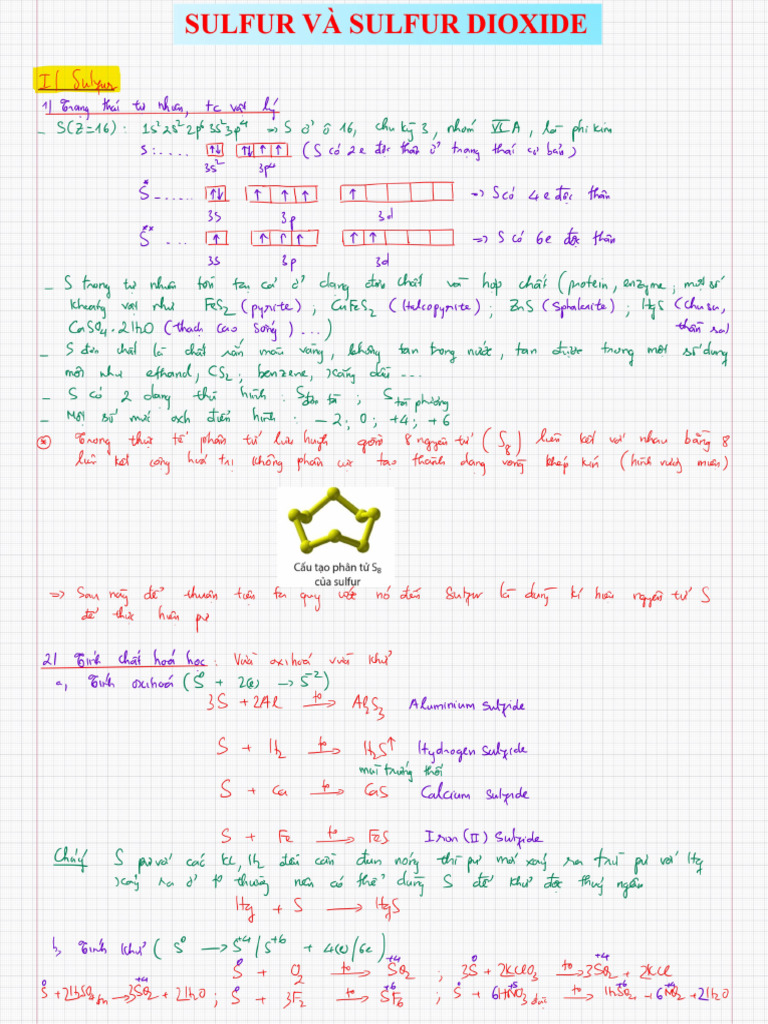 SULFUR VÀ SULFUR DIOXIDE
I/ Sulfur
1) Trạng thái tự nhiên, tc vật lý
_ S(Z=16): 1s²2s²2p⁶3s²3p⁴ => S ở ô 16, chu kỳ 3, nhóm VIA, là phi kim
S:.... ↑↓ ↑↓ ↑ ↑ (S có 2e độc thân ở trạng thái cơ bản)
3s² 3p⁴
S* _ ..... ↑↓ ↑ ↑ ↑ ↑ => S có 4e độc thân
3s 3p 3d
S** ... ↑ ↑ ↑ ↑ ↑ ↑ => S có 6e độc thân
3s 3p 3d
_ S trong tự nhiên tồn tại cả ở dạng đơn chất và hợp chất (protein, enzyme; một số
khoáng vật như FeS₂ (pyrite); CuFeS₂ (Halcopyrite); ZnS (Sphalerite); HgS (chu sa,
CaSO₄.2H₂O (thạch cao sống)...) thần sa)
_ S đơn chất là chất rắn màu vàng, không tan trong nước, tan được trong một số dung
môi như ethanol, CS₂; benzene, xăng dầu...
_ S có 2 dạng thù hình: S đơn tà ; S tà phương
_ Một số mức oxh điển hình: -2; 0; +4; +6
Trong thực tế phân tử lưu huỳnh gồm 8 nguyên tử (S₈) liên kết với nhau bằng 8
liên kết cộng hoá trị không phân cực tạo thành dạng vòng khép kín (hình vương miện)
Cấu tạo phân tử S₈
của sulfur
=> Sau này để thuận tiện ta quy ước nó đến Sulfur là dùng kí hiệu nguyên tử S
để thực hiện pư
2) Tính chất hoá học: Vừa oxi hoá vừa khử
a, Tính oxi hoá (S⁰ + 2(e) -> S⁻²)
3S + 2Al —t⁰→ Al₂S₃ Aluminium sulfide
S + H₂ —t⁰→ H₂S↑ Hydrogen sulfide
mùi trứng thối
S + Ca —t⁰→ CaS Calcium sulfide
S + Fe —t⁰→ FeS Iron (II) Sulfide
Chú ý S pư với các KL, H₂ đều cần đun nóng thì pư mới xảy ra trừ pư với Hg
xảy ra ở t⁰ thường nên có thể dùng S để khử độc thuỷ ngân
Hg + S ⟶ HgS
b, Tính khử (S⁰ ⟶ S⁺⁴/S⁺⁶ + 4(e)/6e)
S⁰ + O₂ —t⁰→ S⁺⁴O₂ ; 3S⁰ + 2KClO₃ —t⁰→ 3S⁺⁴O₂ + 2KCl
S⁰ + 2H₂SO₄ đn ⟶ 3S⁺⁴O₂ + 2H₂O ; S⁰ + 3F₂ —t⁰→ S⁺⁶F₆ ; S⁰ + 6HN⁺⁵O₃ đặc —t⁰→ H₂S⁺⁶O₄ + 6N⁺⁴O₂ + 2H₂O